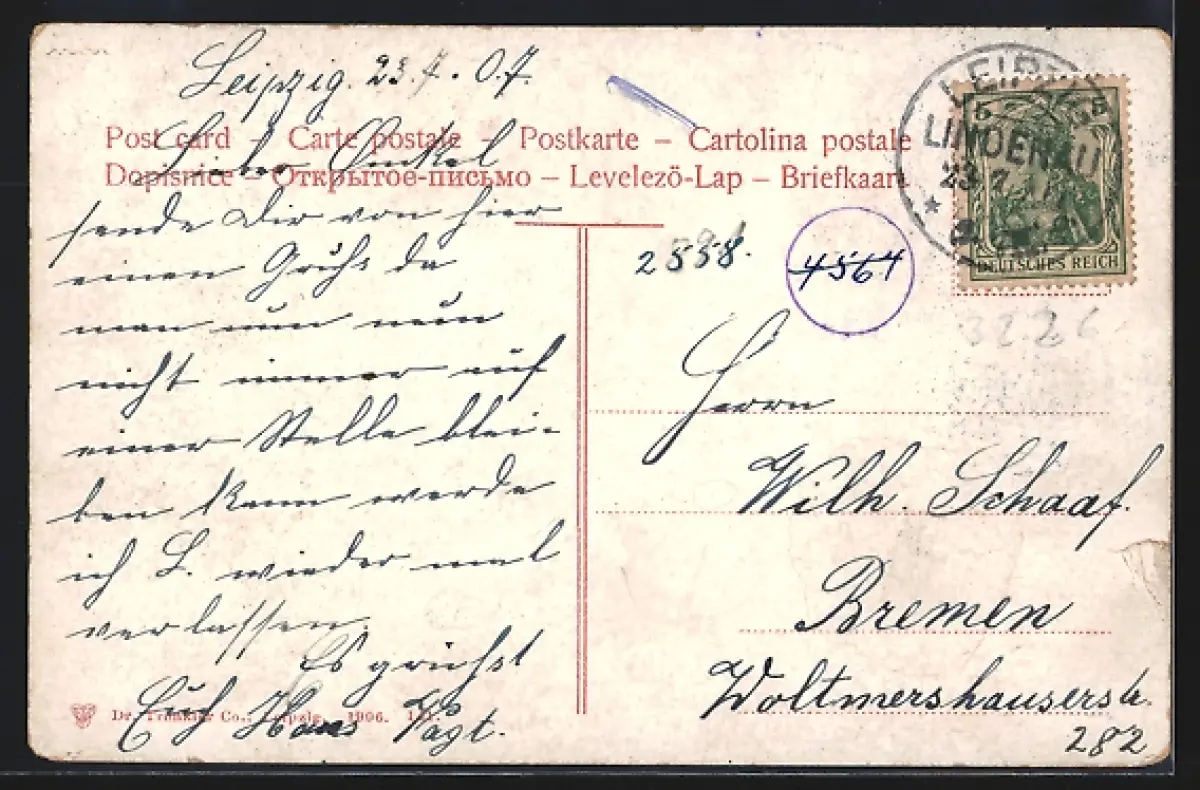 Leipzig. 23.7.07.
Post card – Carte postale – Postkarte – Cartolina postale
Lieber Onkel
Dopisnice – Открытое-письмо – Levelező-Lap – Briefkaart
sende Dir von hier
einen Gruß da
man nun
nicht immer auf
einer Stelle blei-
ben kann werde
ich L. wieder mal
verlassen.
Es grüßt
Euch Hans
Dr. Trenkler Co., Leipzig. 1906.
LEIPZIG
LINDENAU
23.7.
5 5
DEUTSCHES REICH
4564
3226
Herrn
Wilh. Schaaf.
Bremen
Woltmershauserstr.
282